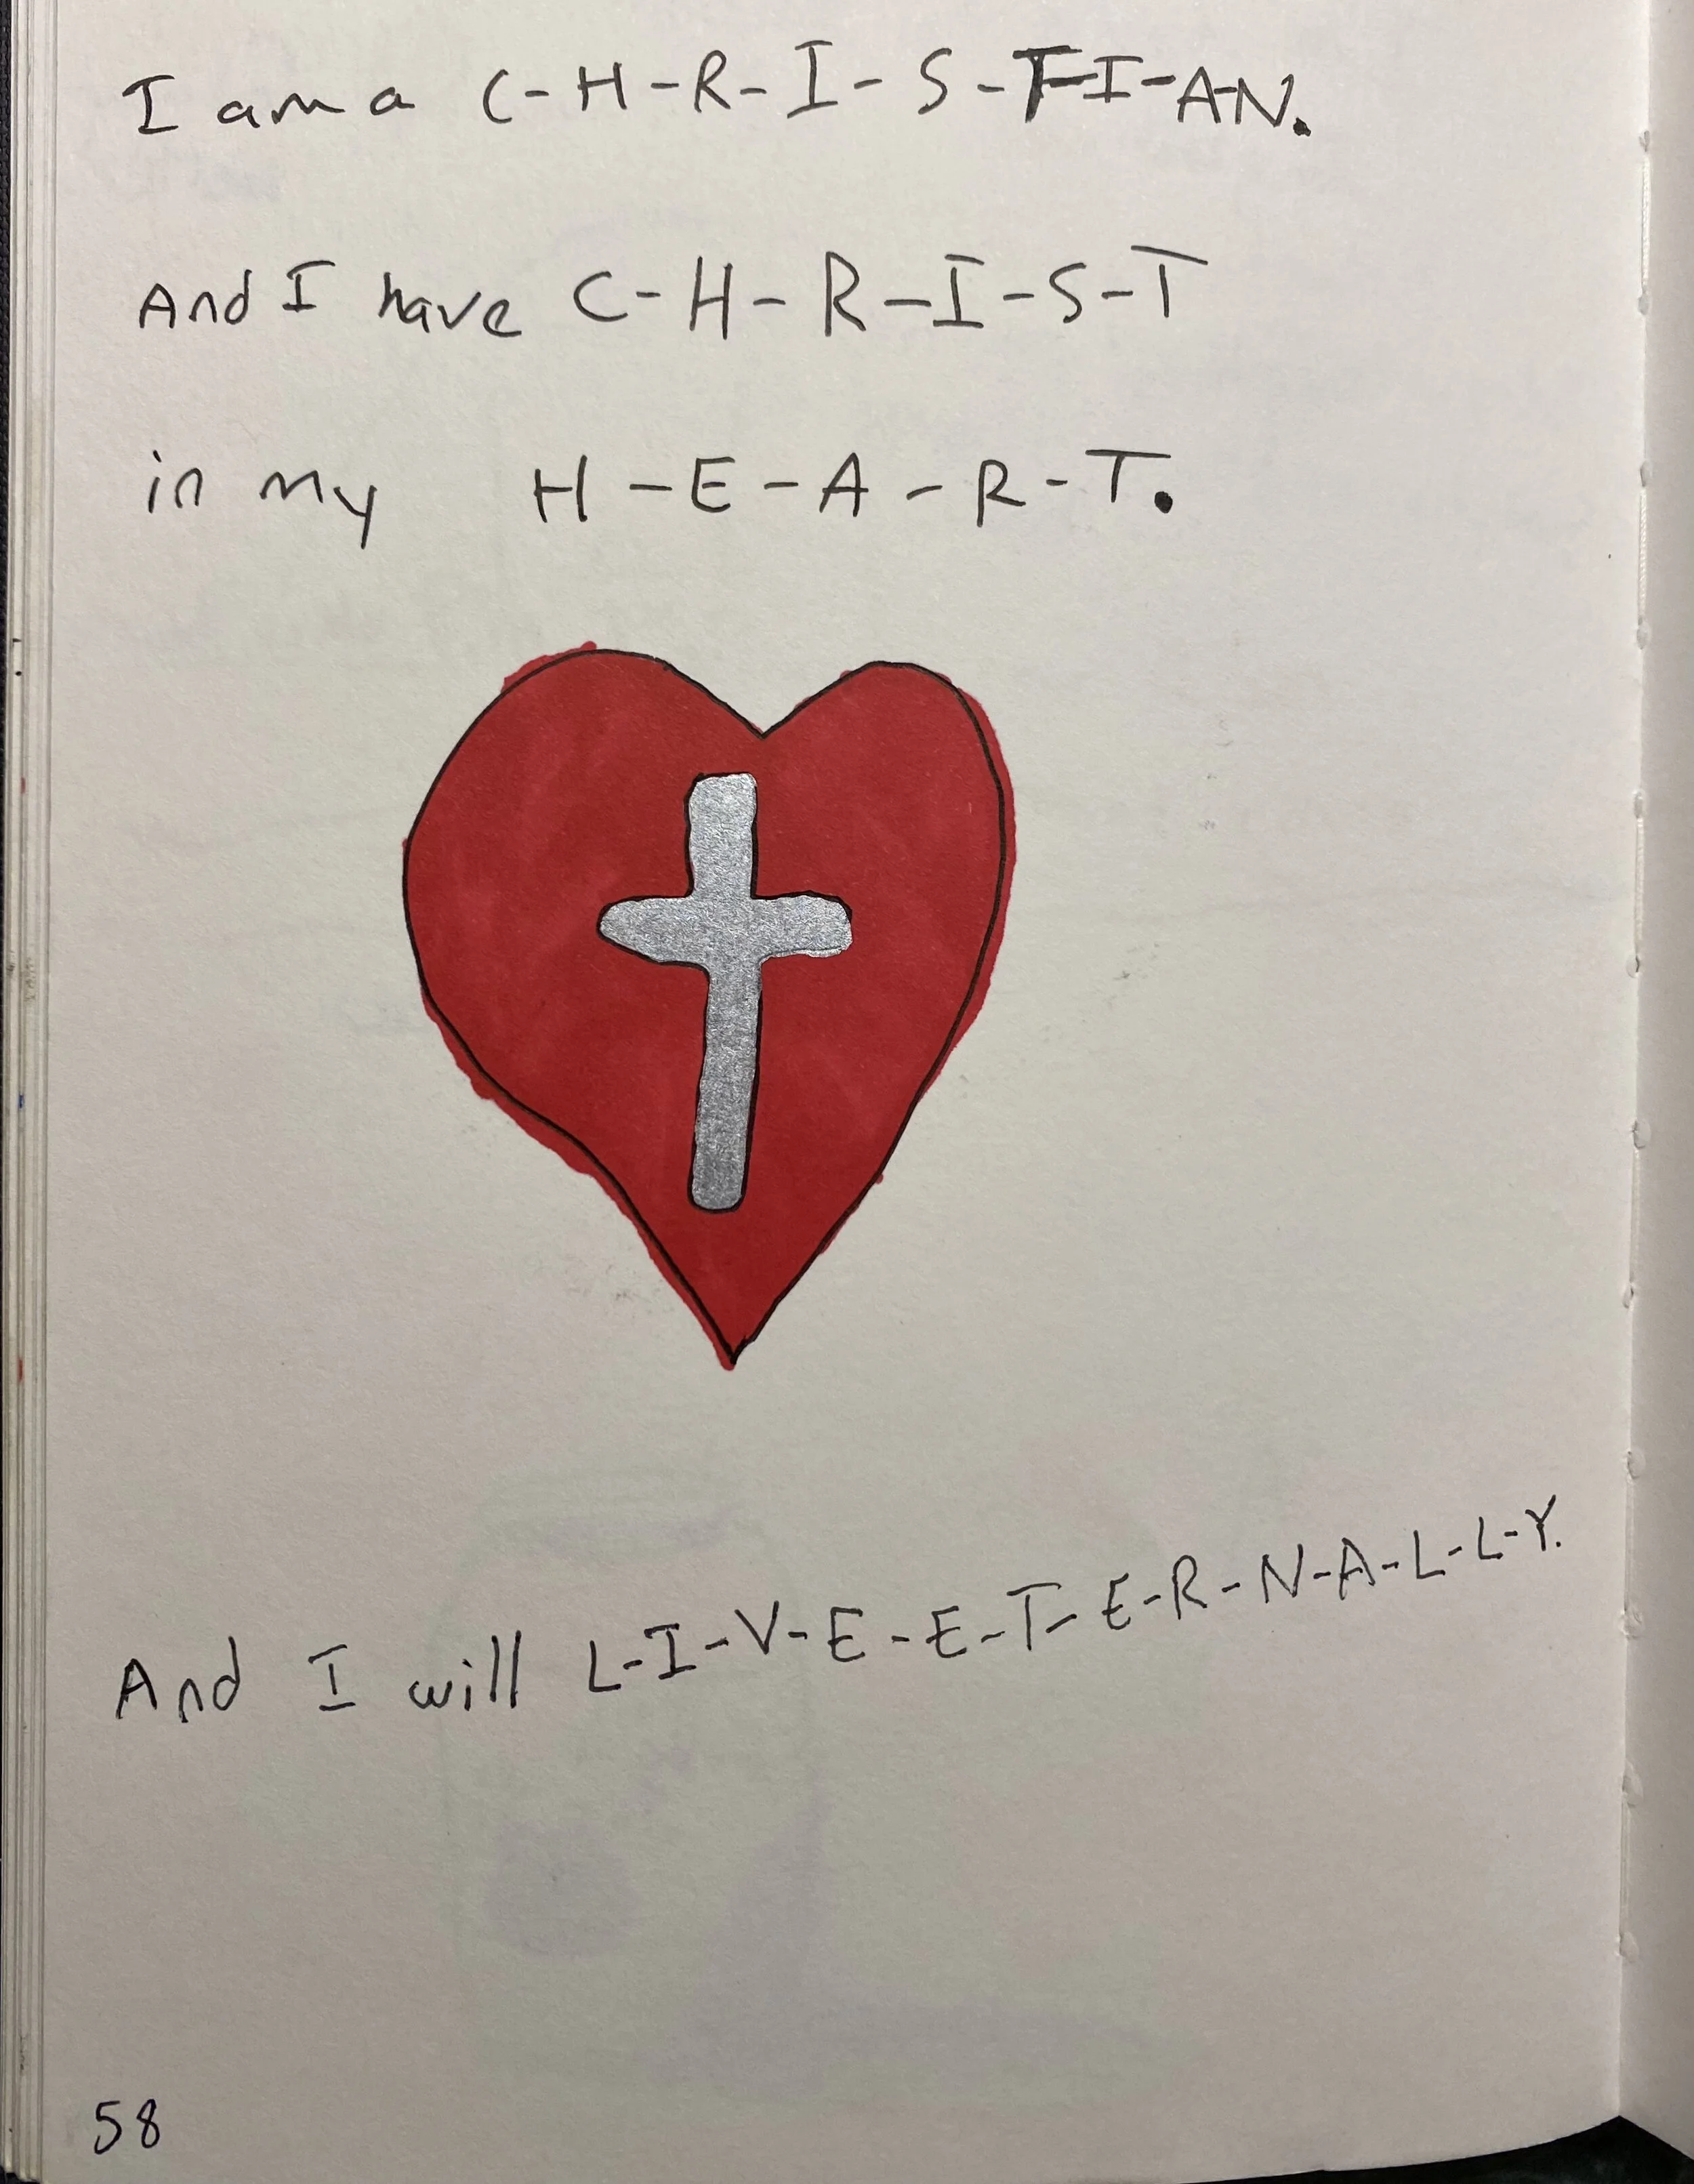 I am a C-H-R-I-S-T-I-A-N.
And I have C-H-R-I-S-T
in my H-E-A-R-T.
And I will L-I-V-E-E-T-E-R-N-A-L-L-Y.
58